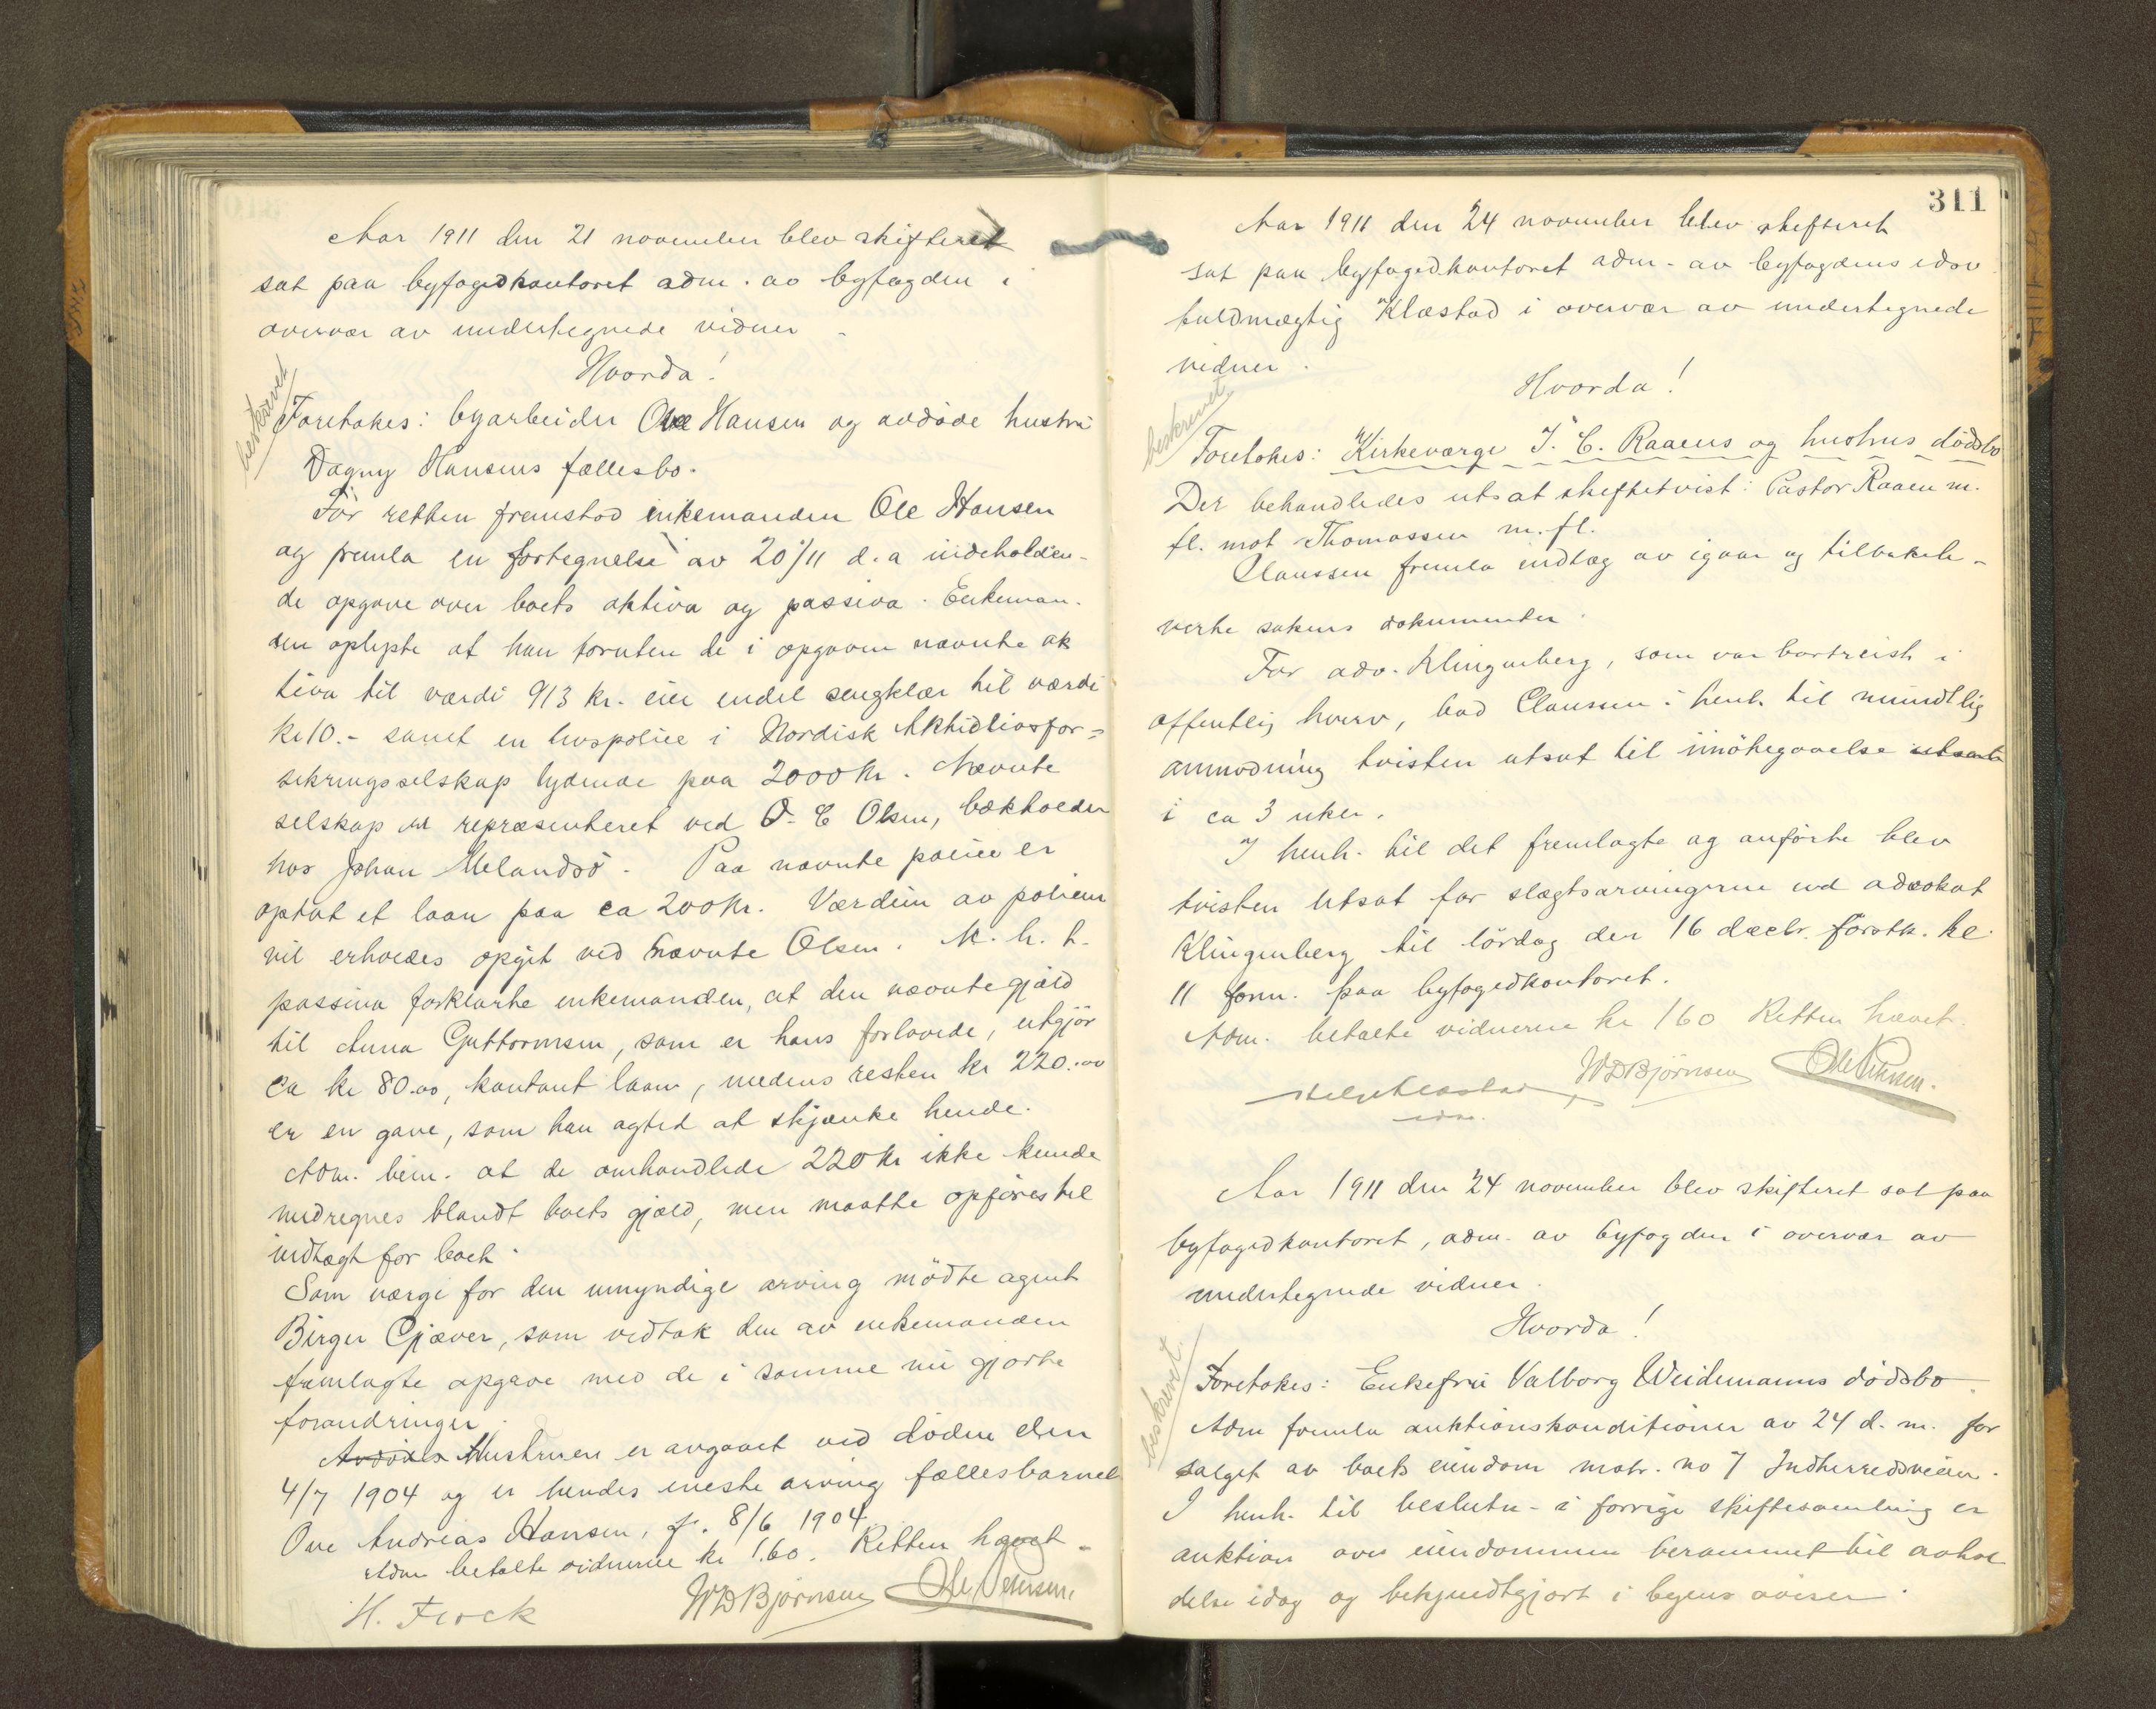 Aar 1911 den 21 november blev skifteret
sat paa byfogedkontoret adm. av byfogden i
overvær av undertegnede vidner
Hvorda!
beskrevet
Foretokes: byarbeider Ole Hansen og avdøde hustru
Dagny Hansens fællesbo.
For retten fremstod enkemanden Ole Hansen
og fremla en fortegnelse av 20/11 d.a indeholden-
de opgave over boets aktiva og passiva. Enkeman-
den oplyste at han foruten de i opgaven nævnte ak
tiva til værdi 913 kr. eier endel sengklær til værdi
kr 10.- samt en livspolice i Nordisk Aktielivsfor-
sikringsselskap lydende paa 2000 kr. Nævnte
selskap er repræsenteret ved O. C Olsen, bokholder
hos Johan Melandsö. Paa nævnte police er
optat et laan paa ca 200 kr. Værdien av policen
vil erholdes opgit ved nævnte Olsen. M. h. t.
passiva forklarte enkemanden, at den nævnte gjæld
til Anna Guttormsen, som er hans forlovede, utgjör
ca kr 80.00, kontant laan, medens resten kr 220.00
er en gave, som han agted at skjænke hende.
Adm. bem. at de omhandlede 220 kr ikke kunde
medregnes blandt boets gjæld, men maatte opføres til
indtægt for boet.
Som værge for den umyndige arving mödte agent
Birger Gjæver, som vedtok den av enkemanden
fremlagte opgave med de i samme nu gjorte
forandringer.
Avdøde Hustruen er avgaaet ved döden den
4/7 1904 og er hendes eneste arving fællesbarnet
Ove Andreas Hansen, f. 8/6 1904.
Adm betalte vidnerne kr 1.60. Retten hævet.
H. Finck WD Bjørnsen Ole Petersen.
311
Aar 1911 den 24 november blev skifteret
sat paa byfogedkontoret adm. av byfogdens edsv
fuldmægtig Klæstad i overvær av undertegnede
vidner.
Hvorda!
beskrevet
Foretokes: Kirkeværge J. C. Raaens og hustrus dödsbo
Der behandledes utsat skiftetvist: Pastor Raaen m.
fl. mot Thomassen m. fl.
Claussen fremla indlæg av igaar og tilbakele-
verte sakens dokumenter.
For adv. Klingenberg, som var bortreist i
offentlig hverv, bad Claussen i henh. til mundtlig
anmodning tvisten utsat til imötegaaelse utsat
i ca 3 uker.
I henh. til det fremlagte og anförte blev
tvisten utsat for slægtsarvingerne ved advokat
Klingenberg til lördag den 16 decbr. förstk. kl.
11 form. paa byfogedkontoret.
Adm. betalte vidnerne kr 1 60 Retten hævet.
Helge Klæstad WD Bjørnsen Ole Petersen.
edsv.
Aar 1911 den 24 november blev skifteret sat paa
byfogedkontoret, adm. av byfogden i overvær av
undertegnede vidner.
Hvorda!
beskrevet
Foretokes: Enkefru Valborg Weidemanns dödsbo.
Adm fremla auktionskonditioner av 24 d. m. for
salget av boets eiendom matr. no 7 Indherredsveien.
I henh. til beslutn. i forrige skiftesamling er
auktion over eiendommen berammet til avhol
delse idag og bekjendtgjort i byens aviser.